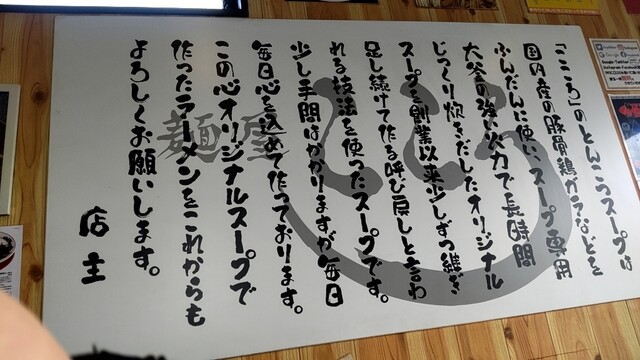 「こころ」のとんこつスープは
国内産の豚骨鶏ガラなどを
ふんだんに使い、スープ専用
大釜の強い火力で長時間
じっくり炊きだしたオリジナル
スープを創業以来少しずつ継ぎ
足し続けて作る呼び戻しと言わ
れる技法を使ったスープです。
少し手間はかかりますが毎日
毎日心を込めて作っております。
この心オリジナルスープで
作ったラーメンをこれからも
よろしくお願いします。
店主
麺屋
こころ